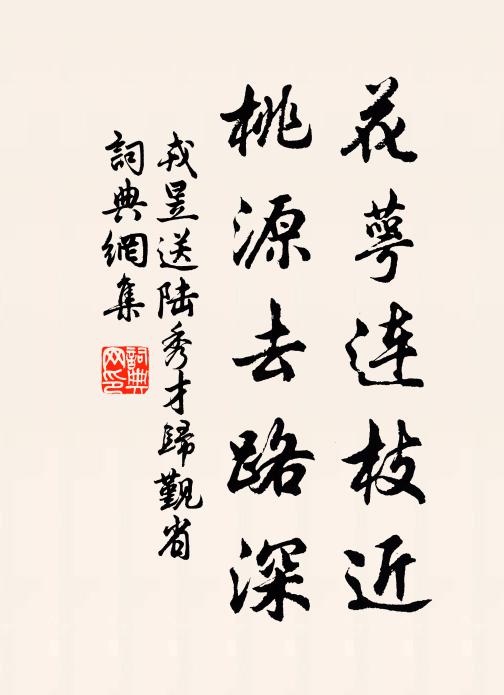 花萼连枝近
桃源去路深
戎昱送陆秀才歸觐省
詞典網集
詞典网印